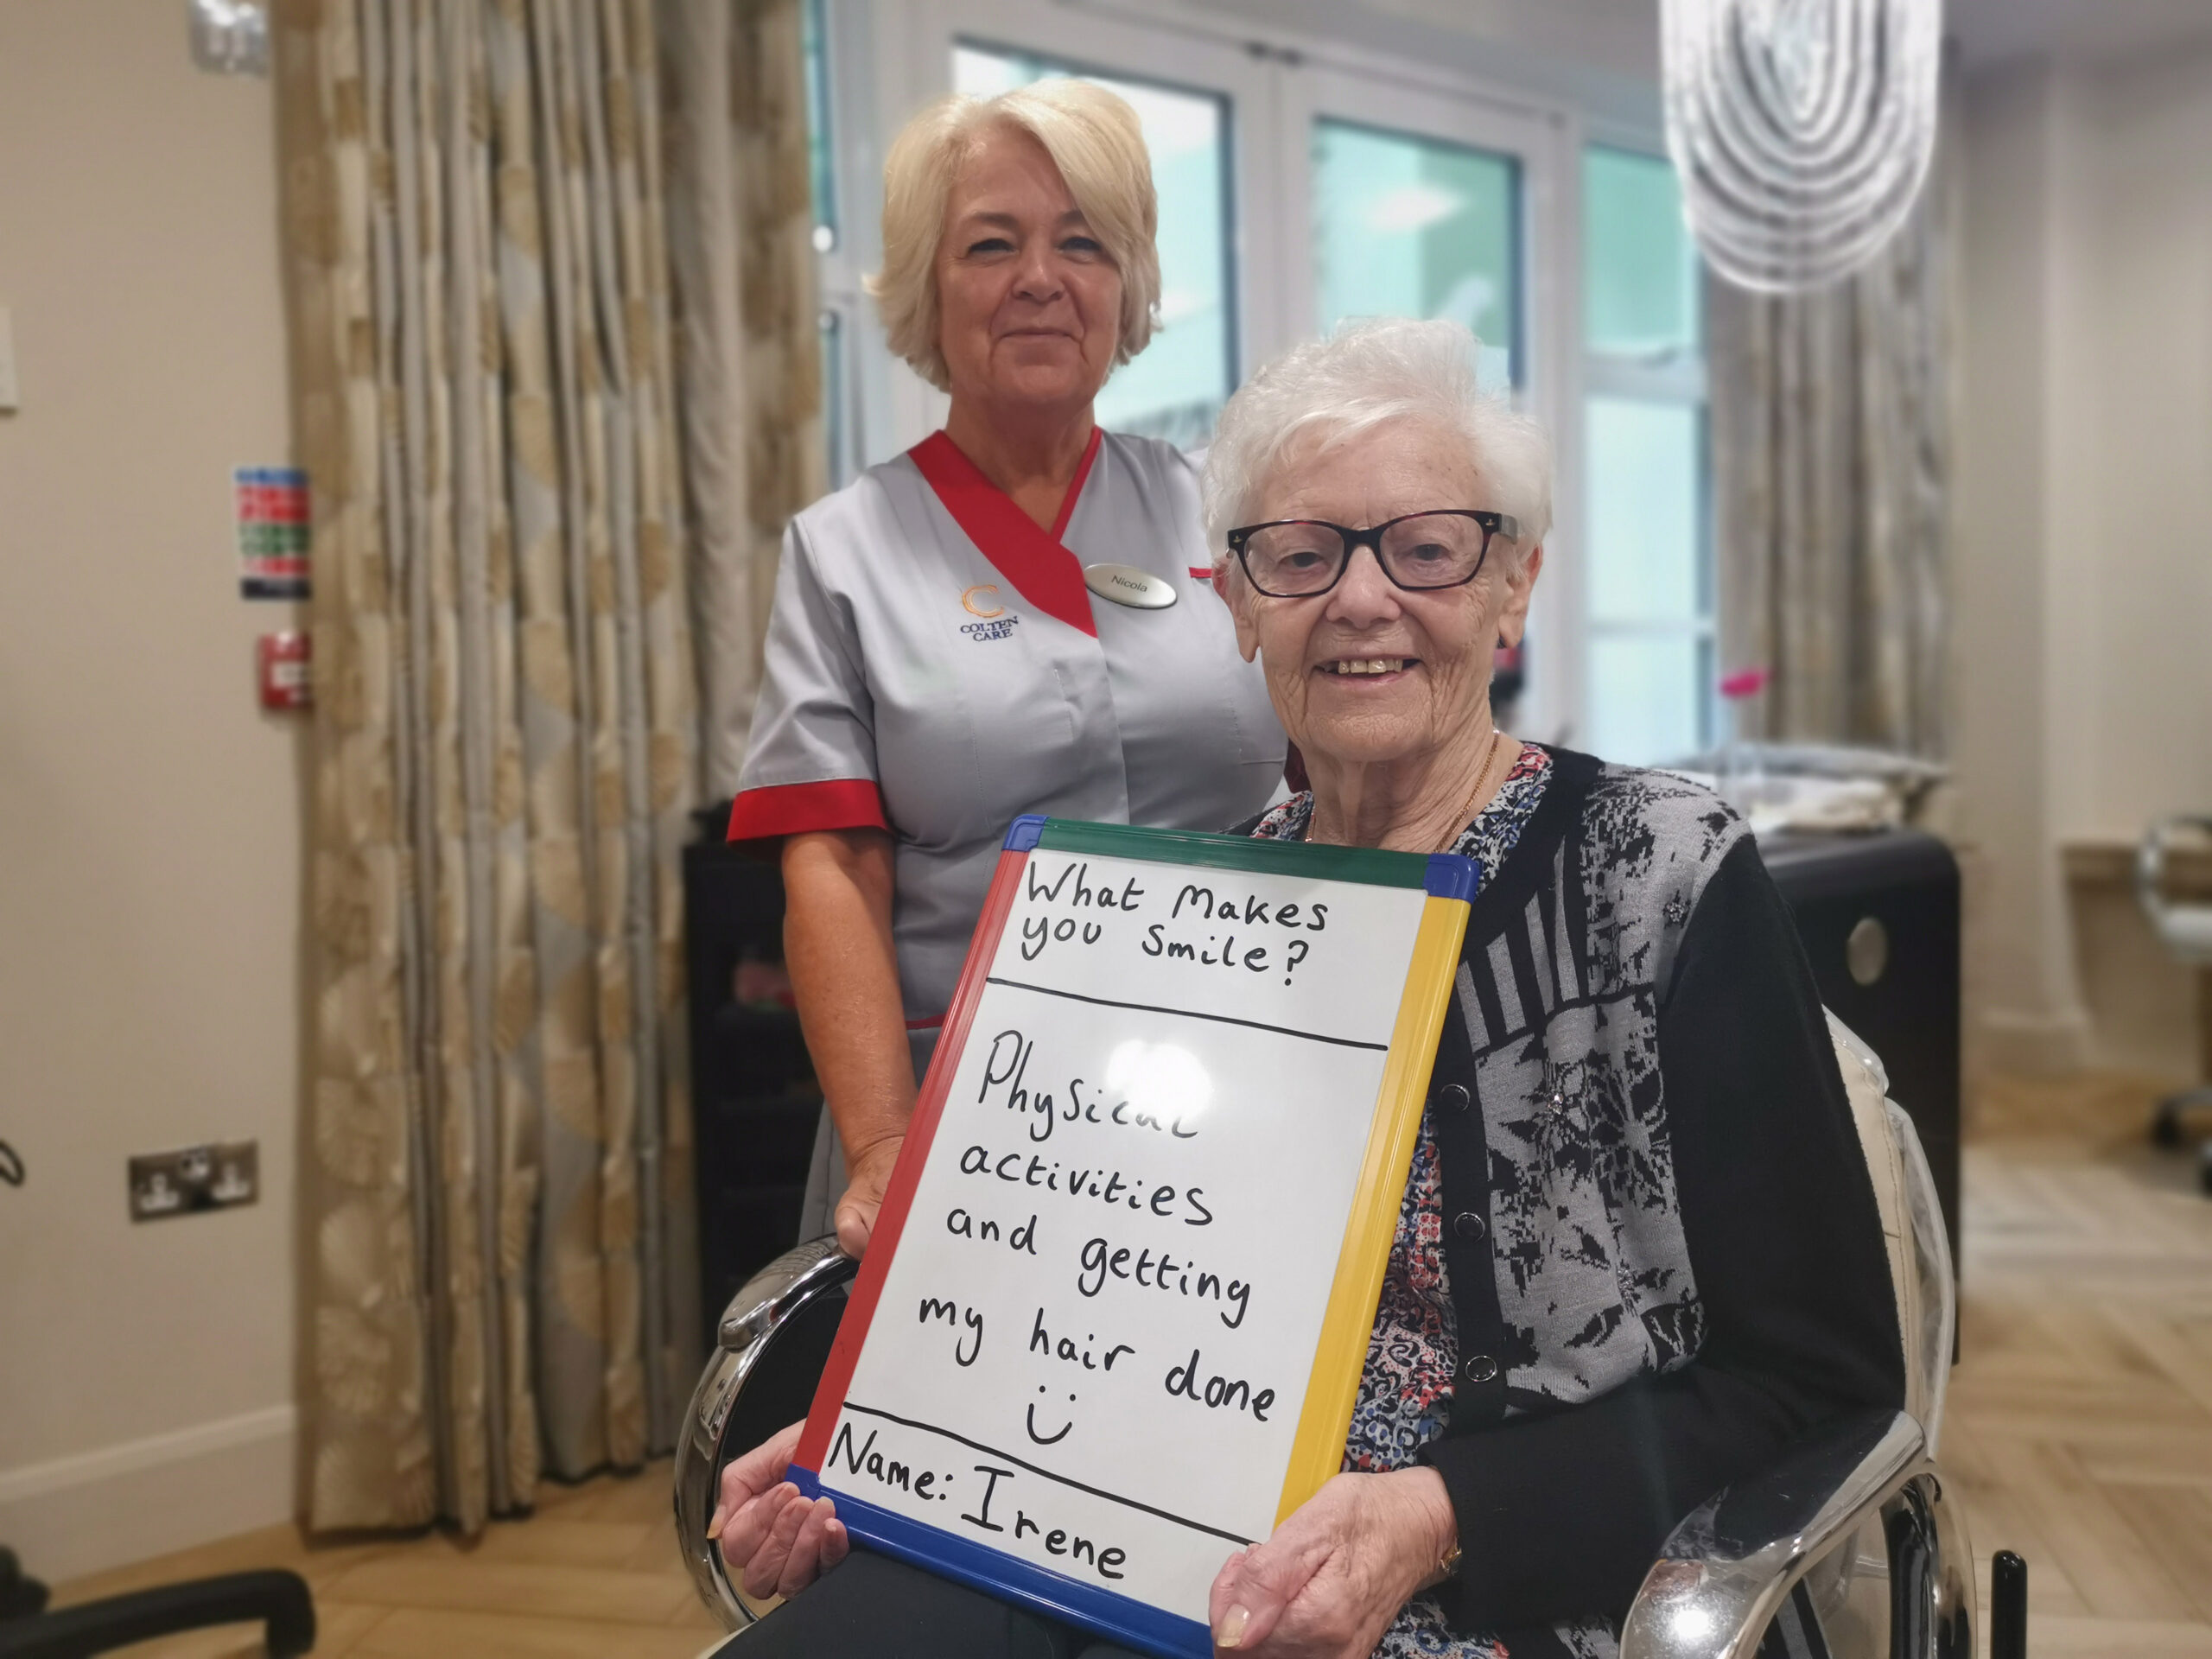 Nicola
C
COLTEN
CARE
What Makes
you Smile?
Physical
activities
and getting
my hair done
Name: Irene